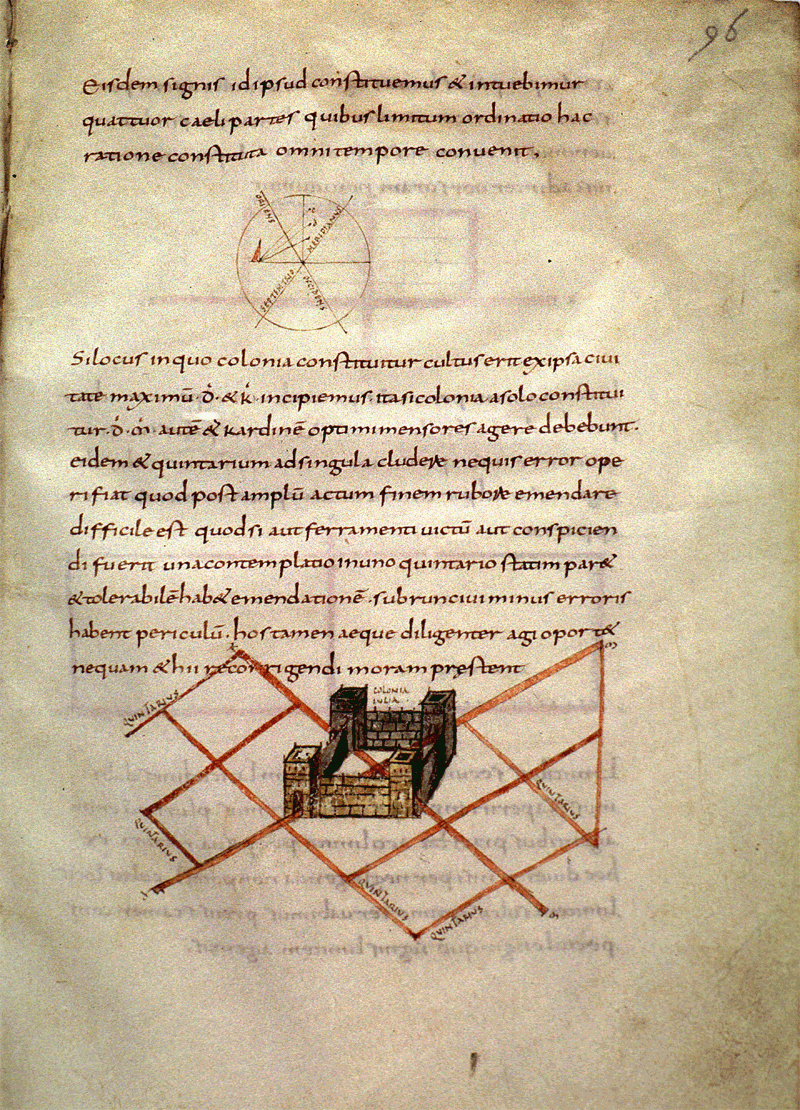 96
Eisdem signis id ipsud constituemus & intuebimur
quattuor caeli partes quibus limitum ordinatio hac
ratione constituta omni tempore convenit,
ORIENS
MERIDIANUS
SEPTENTRIO
OCCIDENS
Si locus in quo colonia constituitur cultus erit ex ipsa civi
tate maximū · d̄ · & k̄ · incipiemus · ita si colonia a solo constitui
tur · d̄ · m̄ · autē & kardinē optimi mensores agere debebunt ·
eidem & quintarium ad singula clud&re nequis error ope
ri fiat quod post amplū actum finem rubore emendare
difficile est quod si aut ferramenti victū aut conspicien
di fuerit una contemplatio in uno quintario statim par&
& tolerabilē hab& emendationē · subruncivi minus erroris
habent periculū · hos tamen aeque diligenter agi oport&
nequam & hii recorrigendi moram pręstent
COLONIA
IULIA
QUINTARIUS
QUINTARIUS
QUINTARIUS
QUINTARIUS
QUINTARIUS